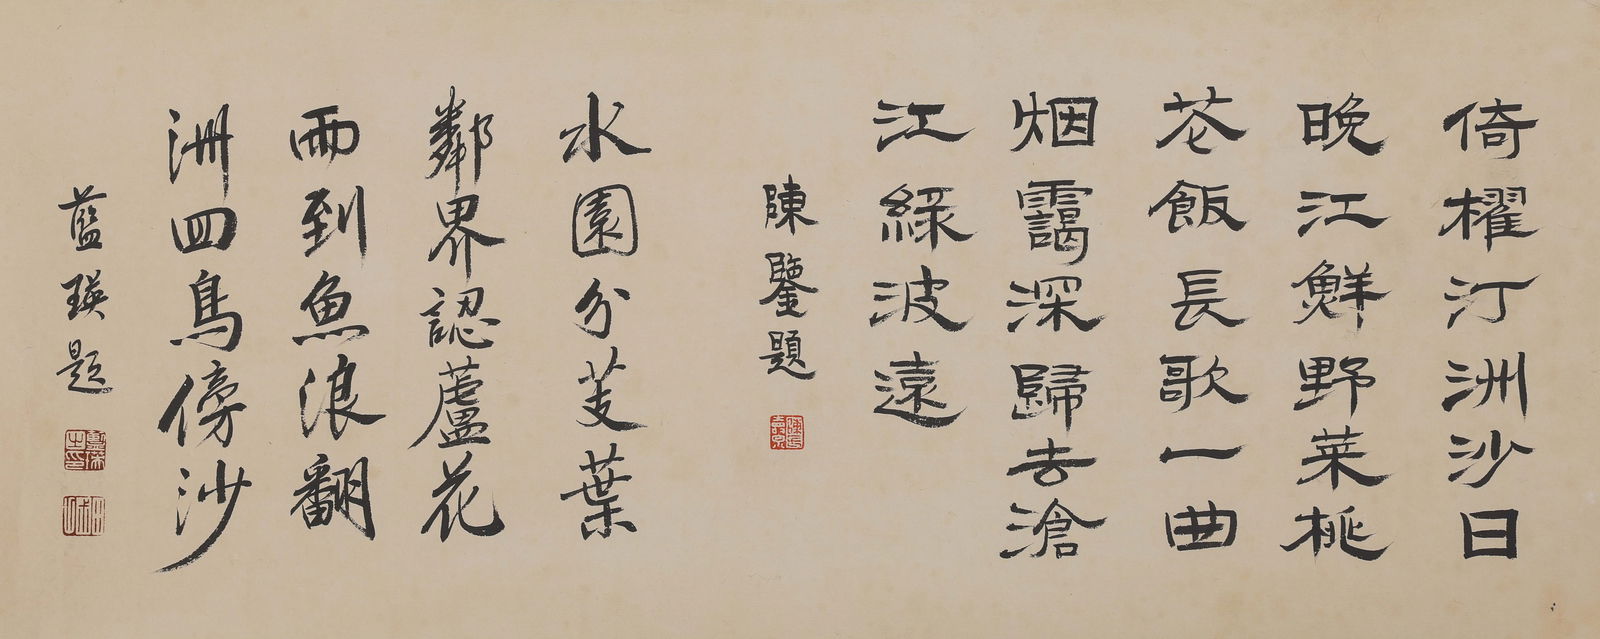 倚櫂汀洲沙日
晚江鮮野菜桃
花飯長歌一曲
烟靄深歸去滄
江綠波遠
陳鑒題
水園分芰葉
鄰界認蘆花
雨到魚浪翻
洲四鳥傍沙
藍瑛題